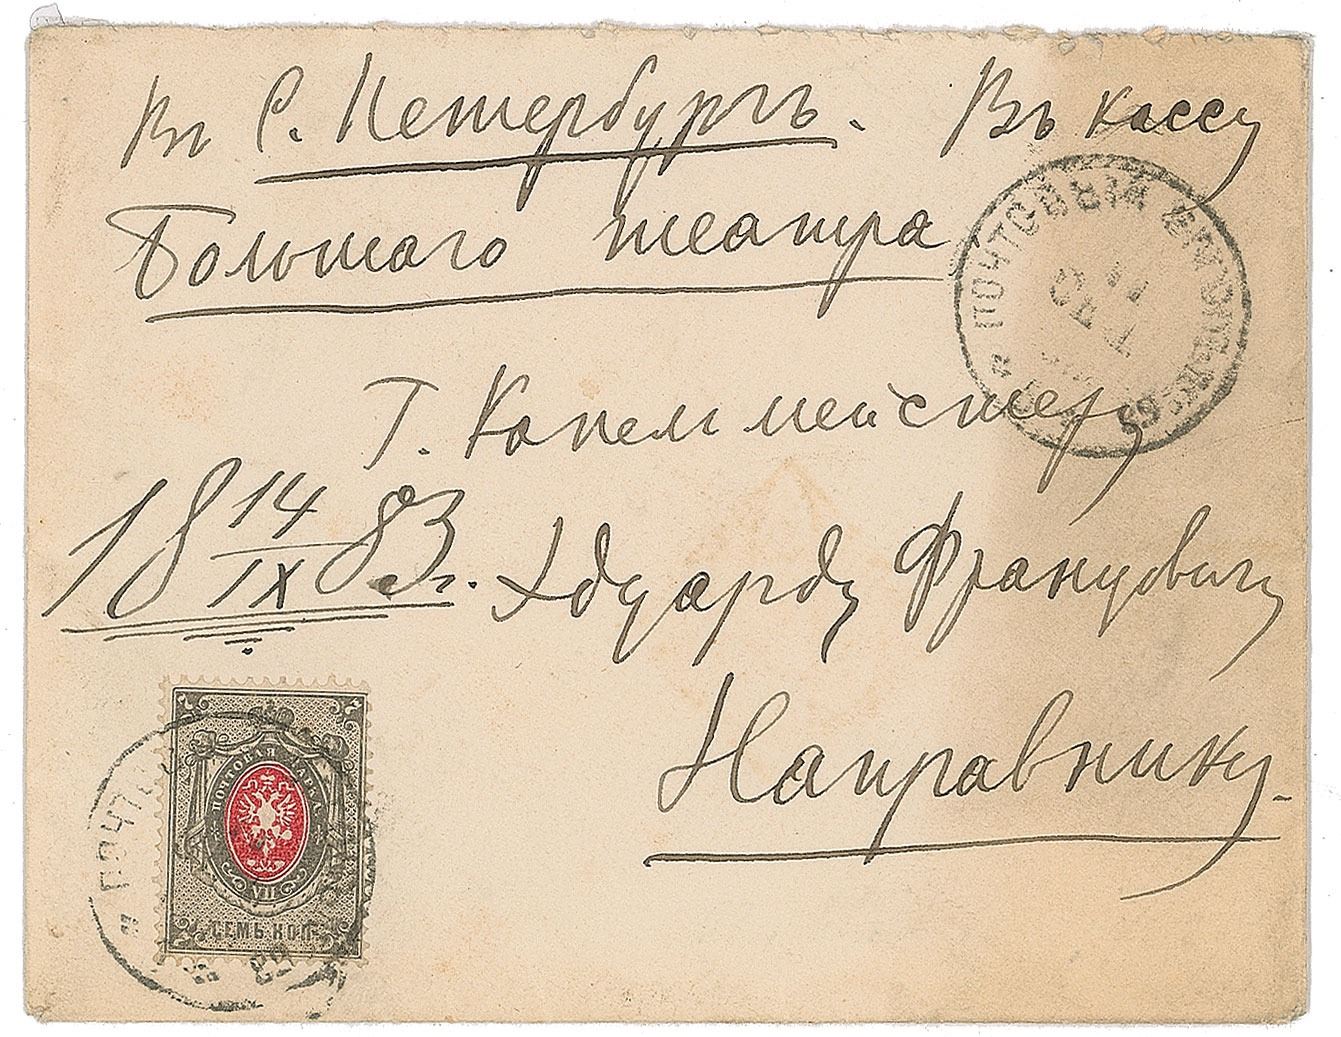 Въ С. Петербургъ. Въ кассу
Большаго театра
Г. Капельмейстеру
18 14/IX 83 г. Эдуарду Францовичу
Направнику.
ПОЧТОВЫЙ ВАГОНЪ
ПОЧТОВАЯ МАРКА
VII
СЕМЬ КОП.
ПОЧТО